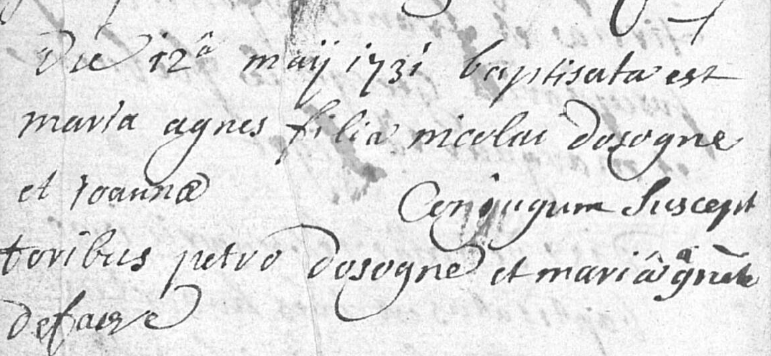 Die 12a maij 1731 baptisata est
maria agnes filia nicolai dosogne
et Joannæ Conjugum Suscept
toribus petro dosogne et mariâ agnete
defawe